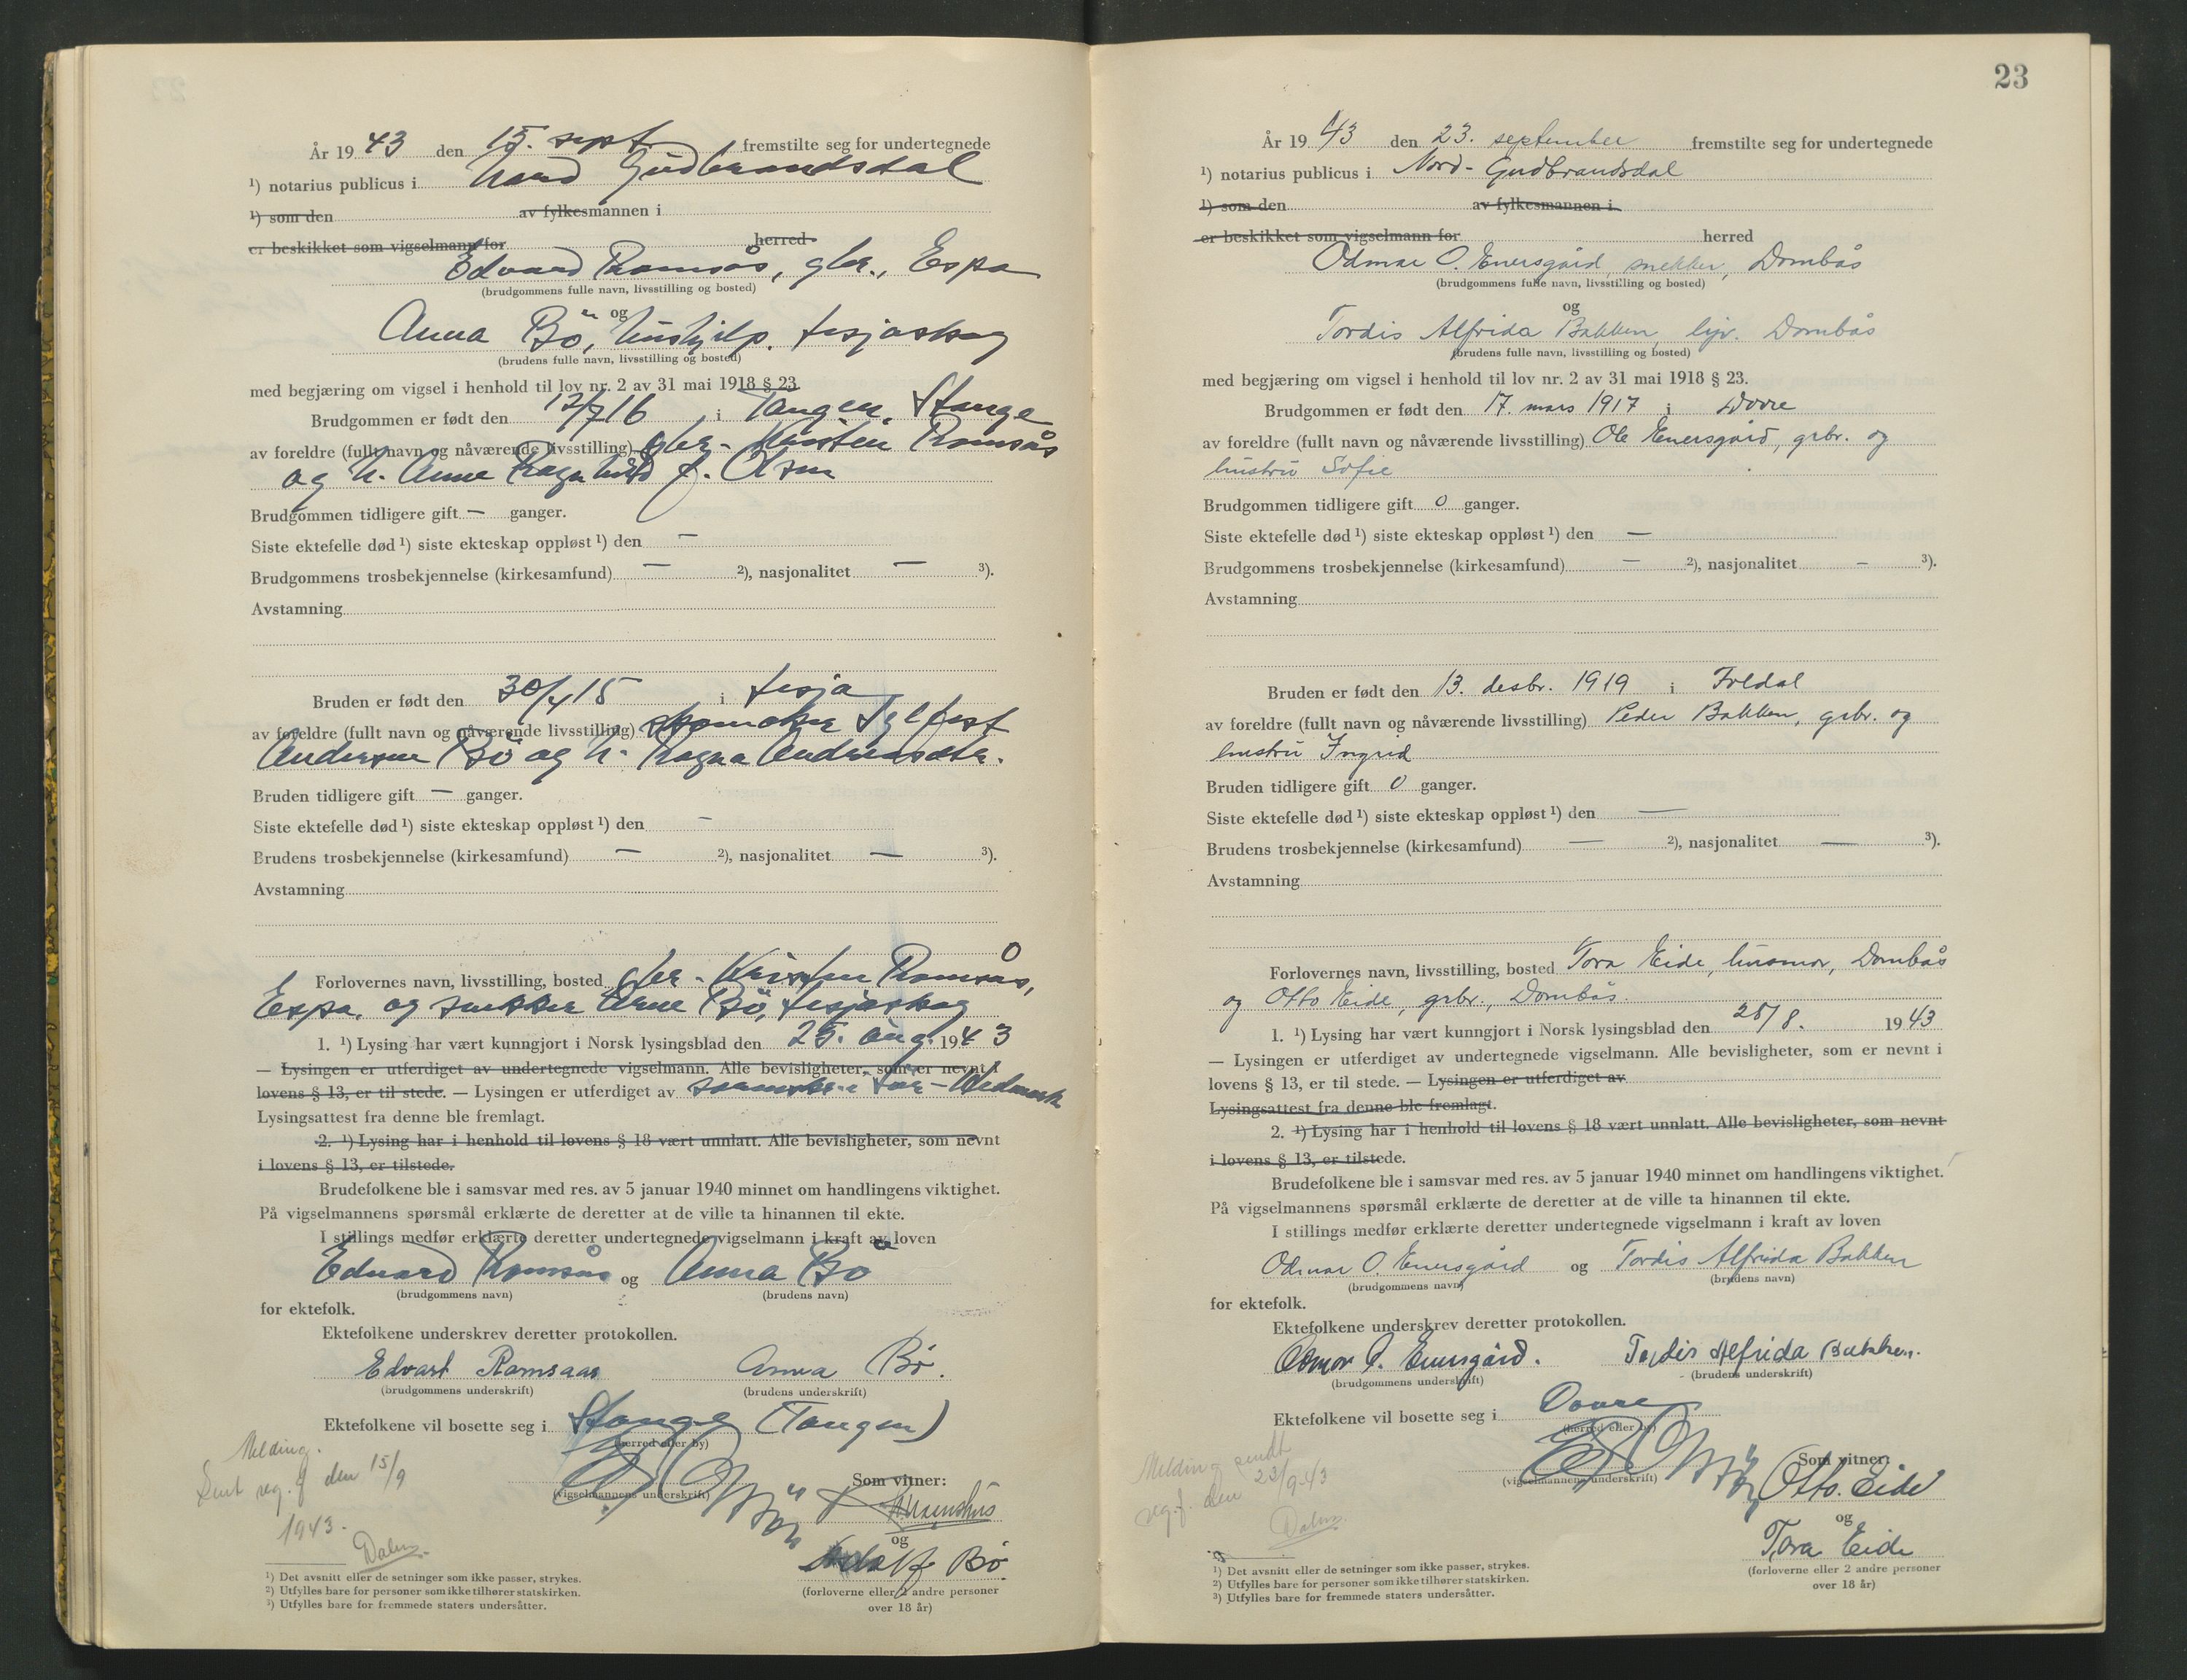 År 19 43 den 15. sept fremstilte seg for undertegnede
¹) notarius publicus i Nord Gudbrandsdal
¹) som den av fylkesmannen i
er beskikket som vigselmann for herred
Edvard Ramsås, gbr., Espa
(brudgommens fulle navn, livsstilling og bosted)
og
Anna Bö, hushjelp. Lesjaskog
(brudens fulle navn, livsstilling og bosted)
med begjæring om vigsel i henhold til lov nr. 2 av 31 mai 1918 § 23
Brudgommen er født den i Tangen, Stange
av foreldre (fullt navn og nåværende livsstilling) gbr. Ramsås
og h. Anne Ragnhild f. Olsen
Brudgommen tidligere gift — ganger.
Siste ektefelle død ¹) siste ekteskap oppløst ¹) den —
Brudgommens trosbekjennelse (kirkesamfund) — ²), nasjonalitet — ³).
Avstamning
Bruden er født den i Lesja
av foreldre (fullt navn og nåværende livsstilling) skomaker Sylfest
Andersen Bö og h. Ragna Andreasdtr.
Bruden tidligere gift — ganger.
Siste ektefelle død ¹) siste ekteskap oppløst ¹) den —
Brudens trosbekjennelse (kirkesamfund) — ²), nasjonalitet — ³).
Avstamning
Forlovernes navn, livsstilling, bosted gbr. Kristen Ramsås,
Espa. og snekker Arne Bö, Lesjaskog
1. ¹) Lysing har vært kunngjort i Norsk lysingsblad den 25. aug. 1943
— Lysingen er utferdiget av undertegnede vigselmann. Alle bevisligheter, som er nevnt i
lovens § 13, er til stede. — Lysingen er utferdiget av sorenskr. i Sør-Hedmark
Lysingsattest fra denne ble fremlagt.
2. ¹) Lysing har i henhold til lovens § 18 vært unnlatt. Alle bevisligheter, som nevnt
i lovens § 13, er tilstede.
Brudefolkene ble i samsvar med res. av 5 januar 1940 minnet om handlingens viktighet.
På vigselmannens spørsmål erklærte de deretter at de ville ta hinannen til ekte.
I stillings medfør erklærte deretter undertegnede vigselmann i kraft av loven
Edvard Ramsås og Anna Bö
(brudgommens navn) (brudens navn)
for ektefolk.
Ektefolkene underskrev deretter protokollen.
Edvart Ramsaas Anna Bø.
(brudgommens underskrift) (brudens underskrift)
Ektefolkene vil bosette seg i Stange (Tangen)
(herred eller by)
Melding.
Sent reg. f den 15/9
1943.
Dalen.
Som vitner:
(vigselmannens underskrift)
og
Adolf Bø.
(forloverne eller 2 andre personer
over 18 år)
¹) Det avsnitt eller de setninger som ikke passer, strykes.
²) Utfylles bare for personer som ikke tilhører statskirken.
³) Utfylles bare for fremmede staters undersåtter.
23
År 19 43 den 23. september fremstilte seg for undertegnede
¹) notarius publicus i Nord-Gudbrandsdal
¹) som den av fylkesmannen i
er beskikket som vigselmann for herred
Odmar O. Enersgård, snekker, Dombås
(brudgommens fulle navn, livsstilling og bosted)
og
Tordis Alfrida Bakken, Dombås
(brudens fulle navn, livsstilling og bosted)
med begjæring om vigsel i henhold til lov nr. 2 av 31 mai 1918 § 23.
Brudgommen er født den 17. mars 1917 i Dovre
av foreldre (fullt navn og nåværende livsstilling) Ole Enersgård, grbr. og
hustru Sofie
Brudgommen tidligere gift 0 ganger.
Siste ektefelle død ¹) siste ekteskap oppløst ¹) den —
Brudgommens trosbekjennelse (kirkesamfund) — ²), nasjonalitet — ³).
Avstamning
Bruden er født den 13. desbr. 1919 i Foldal
av foreldre (fullt navn og nåværende livsstilling) Peder Bakken, grbr. og
hustru Ingrid
Bruden tidligere gift 0 ganger.
Siste ektefelle død ¹) siste ekteskap oppløst ¹) den —
Brudens trosbekjennelse (kirkesamfund) — ²), nasjonalitet — ³).
Avstamning
Forlovernes navn, livsstilling, bosted Tora Eide, husmor, Dombås
og Otto Eide, grbr., Dombås.
1. ¹) Lysing har vært kunngjort i Norsk lysingsblad den 25/8. 1943
— Lysingen er utferdiget av undertegnede vigselmann. Alle bevisligheter, som er nevnt i
lovens § 13, er til stede. — Lysingen er utferdiget av
Lysingsattest fra denne ble fremlagt.
2. ¹) Lysing har i henhold til lovens § 18 vært unnlatt. Alle bevisligheter, som nevnt
i lovens § 13, er tilstede.
Brudefolkene ble i samsvar med res. av 5 januar 1940 minnet om handlingens viktighet.
På vigselmannens spørsmål erklærte de deretter at de ville ta hinannen til ekte.
I stillings medfør erklærte deretter undertegnede vigselmann i kraft av loven
Odmar O. Enersgård og Tordis Alfrida Bakken
(brudgommens navn) (brudens navn)
for ektefolk.
Ektefolkene underskrev deretter protokollen.
Odmar O. Enersgård. Tordis Alfrida Bakken.
(brudgommens underskrift) (brudens underskrift)
Ektefolkene vil bosette seg i Dovre
(herred eller by)
Melding sendt
reg.f. den 23/9-43
Dalen.
Som vitner:
(vigselmannens underskrift)
Otto. Eide
og
Tora Eide
(forloverne eller 2 andre personer
over 18 år)
¹) Det avsnitt eller de setninger som ikke passer, strykes.
²) Utfylles bare for personer som ikke tilhører statskirken.
³) Utfylles bare for fremmede staters undersåtter.